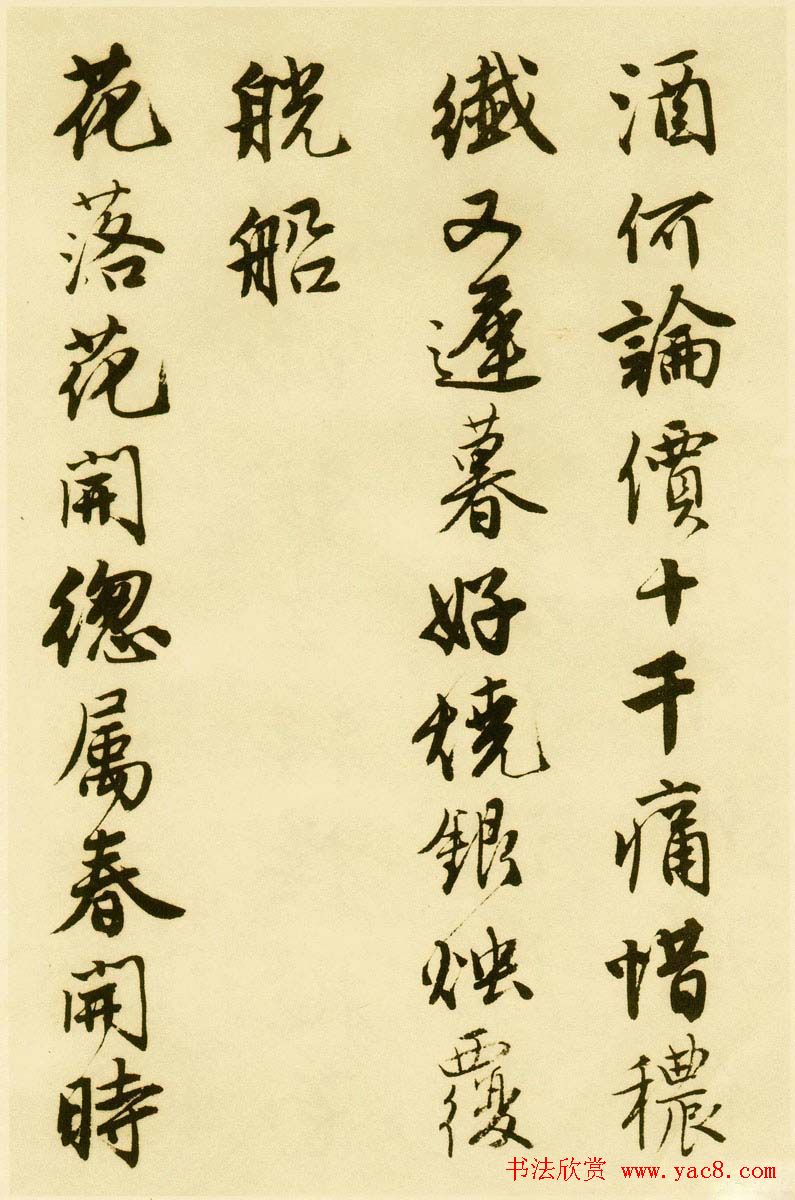 酒何論價十千痛惜穠
纖又遲暮好燒銀烛覆
觥船
花落花開總屬春開時
书法欣赏 www.yac8.com